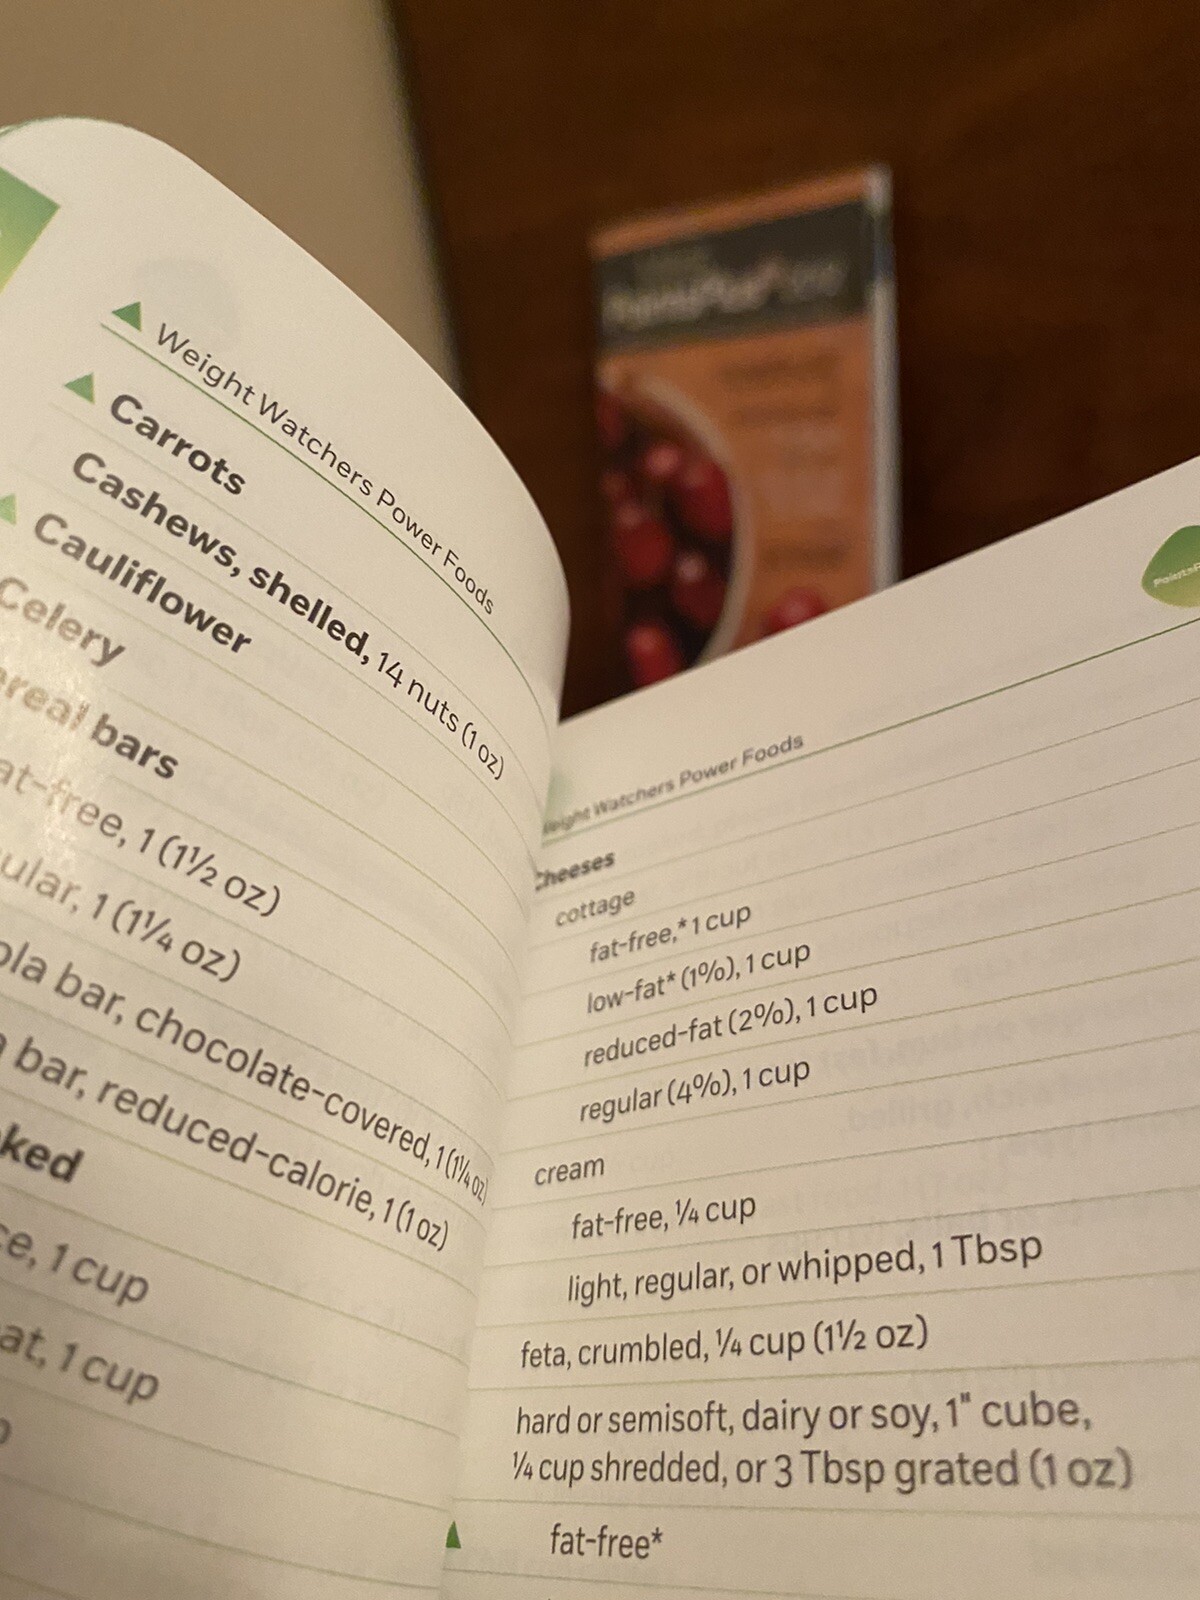 Weight Watchers Power Foods
Carrots
Cashews, shelled, 14 nuts (1 oz)
Cauliflower
Celery
bars
at-free, 1 (1½ oz)
ular, 1 (1¼ oz)
ola bar, chocolate-covered, 1 (1¼ oz)
bar, reduced-calorie, 1 (1 oz)
ked
ce, 1 cup
at, 1 cup
Weight Watchers Power Foods
Cheeses
cottage
fat-free,* 1 cup
low-fat* (1%), 1 cup
reduced-fat (2%), 1 cup
regular (4%), 1 cup
cream
fat-free, ¼ cup
light, regular, or whipped, 1 Tbsp
feta, crumbled, ¼ cup (1½ oz)
hard or semisoft, dairy or soy, 1" cube,
¼ cup shredded, or 3 Tbsp grated (1 oz)
fat-free*